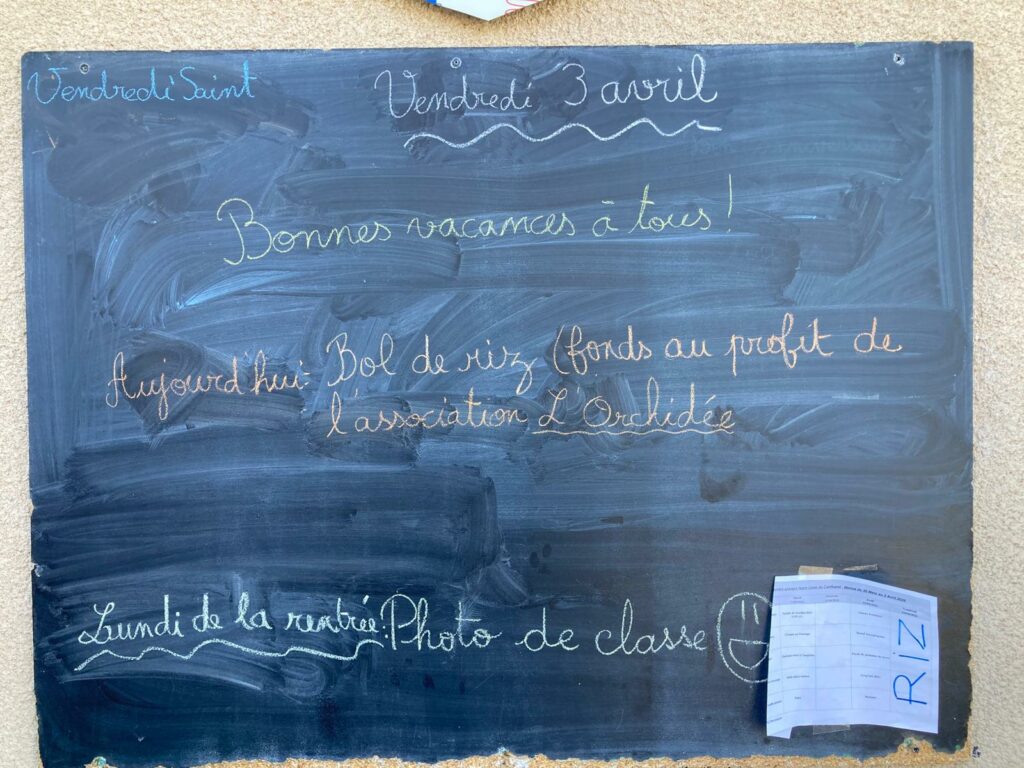 Vendredi Saint
Vendredi 3 avril
Bonnes vacances à tous !
Aujourd'hui: Bol de riz (fonds au profit de
l'association L'Orchidée
Lundi de la rentrée: Photo de classe
RIZ